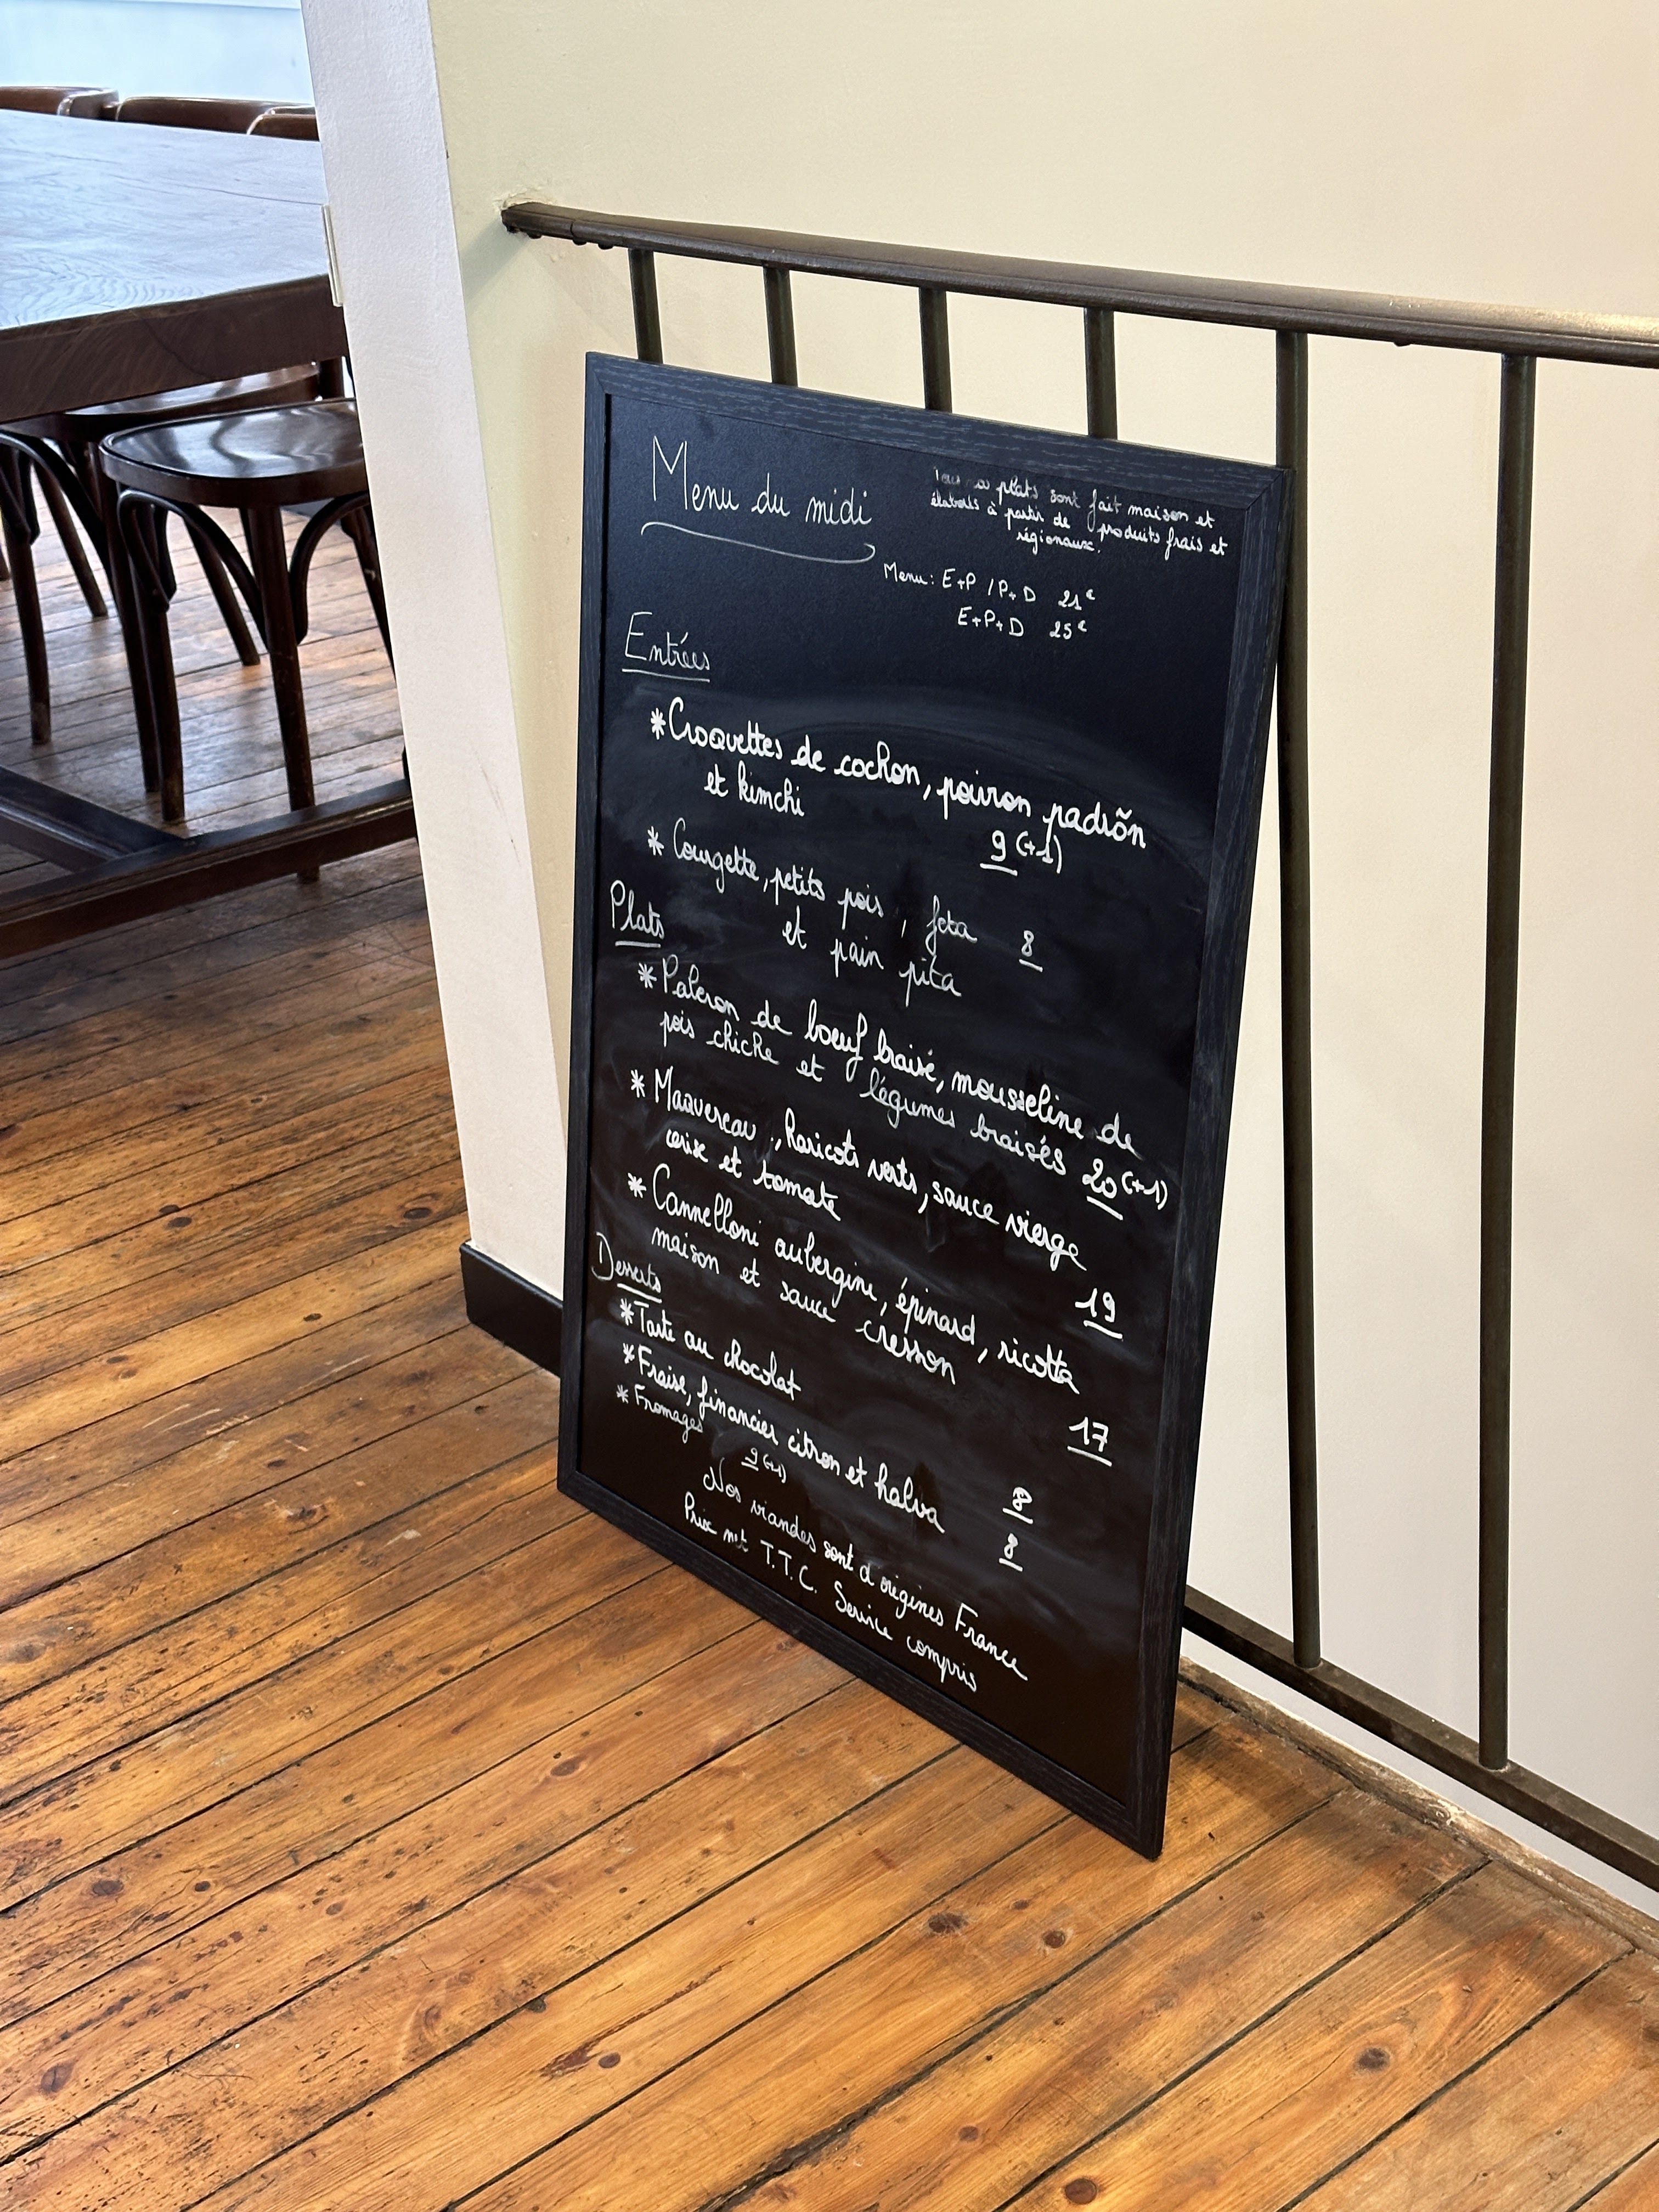 Menu du midi
plats sont fait maison et
élaborés à partir de produits frais et
régionaux.
Menu: E+P / P+D 21€
E+P+D 25€
Entrées
*Croquettes de cochon, poivron padrõn
et kimchi
9 (+1)
* Courgette, petits pois, feta 8
et pain pita
Plats
* Paleron de boeuf braisé, mousseline de
pois chiche et légumes braisés 20 (+1)
* Maquereau, haricots verts, sauce vierge
cerise et tomate
19
* Cannelloni aubergine, épinard, ricotta
maison et sauce cresson
17
Desserts
*Tarte au chocolat 8
*Fraise, financier citron et halva 8
* Fromages 9 (+1)
Nos viandes sont d origines France
Prix net T.T.C. Service compris